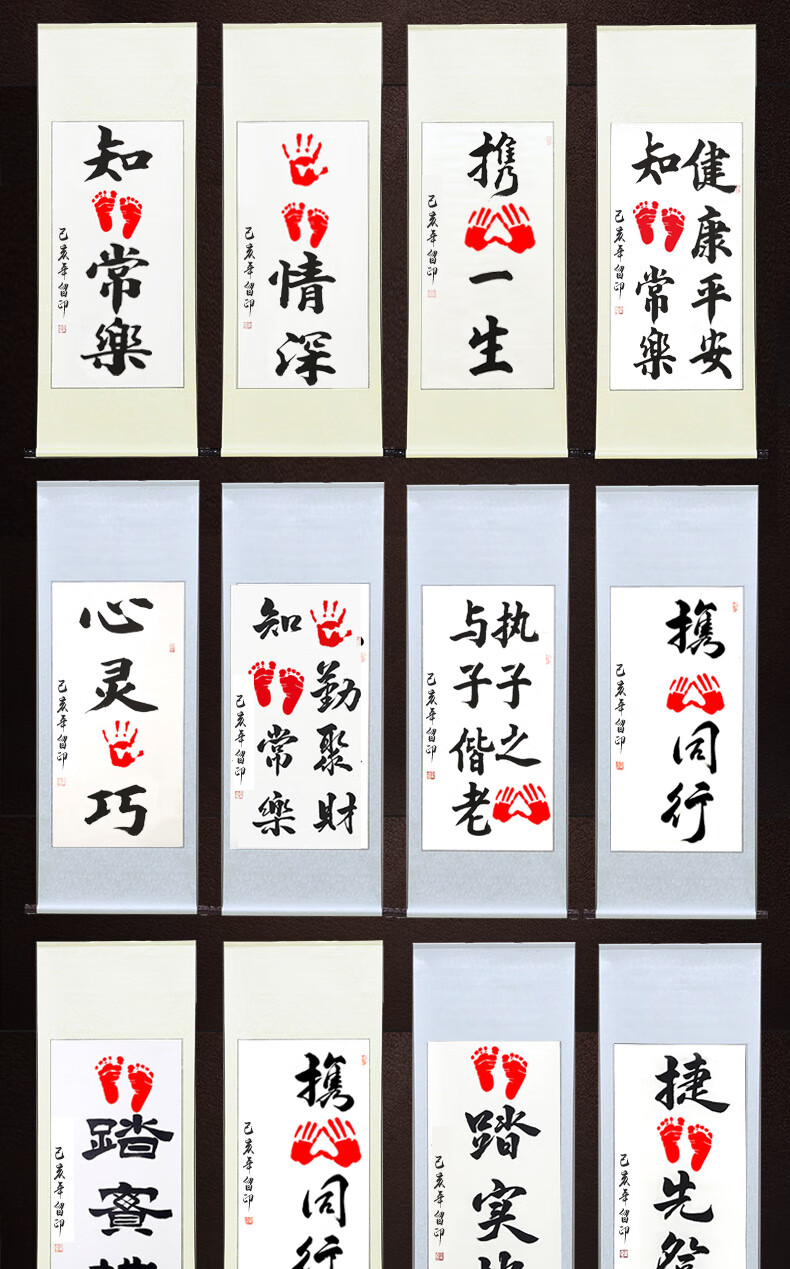 知常樂
己亥年留印
情深
己亥年留印
携一生
己亥年留印
健康平安
知常樂
己亥年留印
心灵巧
己亥年留印
勤聚財
知常樂
己亥年留印
执子之
与子偕老
己亥年留印
携同行
己亥年留印
踏實
己亥年留印
携同行
己亥年留印
踏实
己亥年留印
捷先
己亥年留印